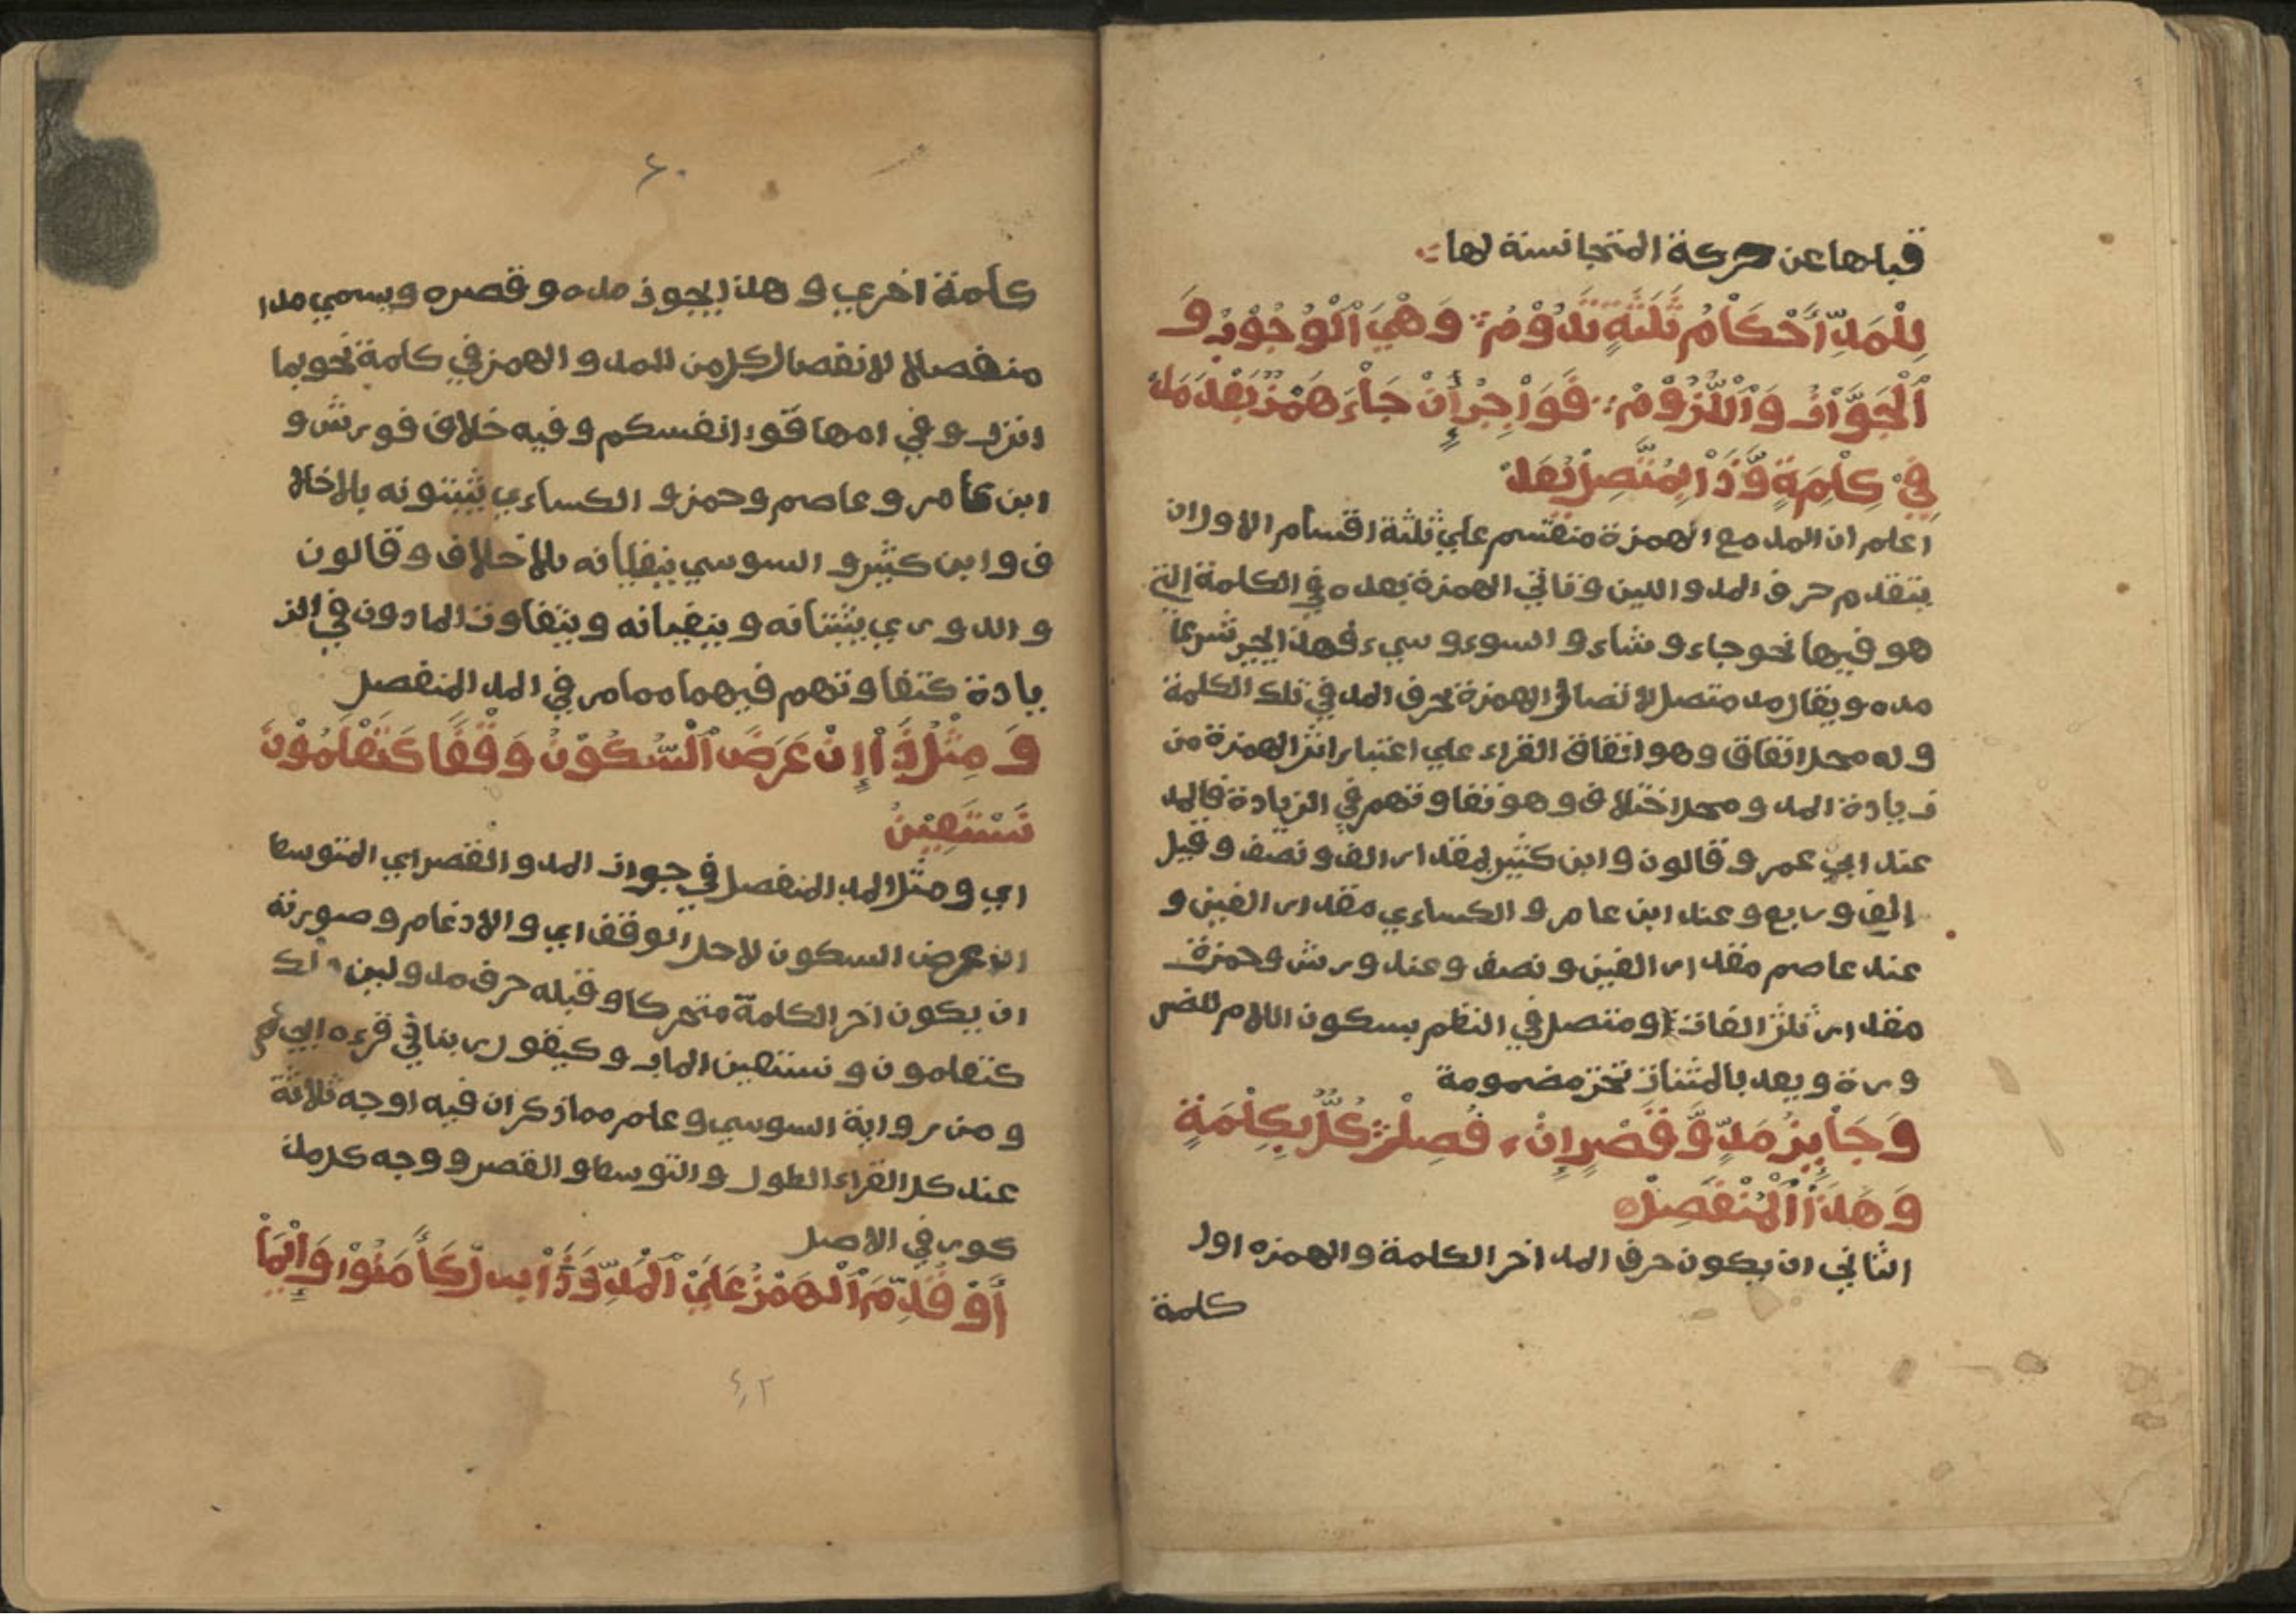 قبلها عن حركة المتجانسة لها
لِلْمَدِّ أَحْكَامٌ ثَلَثَةٌ تَدُوْمُ وَهْيَ اَلْوُجُوْبُ وَ
اَلْجَوَّازُ وَاْللُّزُوْمْ فَوَاْجِبٌ أِنْ جَاْءَ هَمْزٌ بَعْدَ مَدْ
فِيْ كِلِمَةٍ وَّذَاْ بِمُتَّصِلْ يُعَدْ
اعلم ان المد مع الهمزة منقسم علي ثلثة اقسام الاول ان
يتقدم حرف المد واللين وتاتي الهمزة بعده في الكلمة التي
هو فيها نحو جاء وشاء والسوء وسيء فهذا يجب شرعا
مده ويقال مد متصل لاتصال الهمزة بحرف المد في تلك الكلمة
وله محل اتفاق وهو اتفاق القراء علي اعتبار اثر الهمزة من
زيادة المد ومحل اختلاف وهو تفاوتهم في الزيادة فالمد
عند ابي عمر وقالون وابن كثير بمقدار الف ونصف وقيل
الف وربع وعند ابن عامر والكساءي مقدار الفين و
عند عاصم مقدار الفين ونصف وعند ورش وحمزة
مقدار ثلث الفات ومتصل في النظم بسكون اللام للضر
ورة ويعد بالمثناة تحت مضمومة
وَجَاْيِزٌ مَدٌّ وَّقَصْرٌ إِنْ فُصِلْ كُلٌّ بِكِلْمَةٍ
وَهَذَاْ اَلْمُنْفَصِلْ
الثاني ان يكون حرف المد اخر الكلمة والهمزه اول
كلمة
٤٠
كلمة اخري وهذا يجوز مده وقصره ويسمي مدا
منفصلا لانفصال كل من المد والهمز في كلمة نحو بما
انزل وفي امها قوا انفسكم وفيه خلاف فورش و
ابن عامر وعاصم وحمز والكساءي يثبتونه بلا خلا
ف وابن كثير والسوسي ينفيانه بلا خلاف وقالون
والدوري يثبتانه وينفيانه ويتفاوت المادون في الز
يادة كتفاوتهم فيهما مما مر في المد المنفصل
وَمِثْلُ ذَاْ إِنْ عَرَضَ اَلْسُّكُوْنُ وَقْفًا كَتَعْلَمُوْنَ
نَسْتَعِيْنُ
اي ومثل المد المنفصل في جواز المد والقصر اي المتوسط
ان عرض السكون لاجل الوقف اي والادغام وصورته
ان يكون اخر الكلمة متحركا وقبله حرف مد ولين
كتعلمون ونستعين الماب وكيقول ربنا في قرءه ابي عمر
ومن رواية السوسي وعلم مما ذكر ان فيه اوجه ثلاثة
عند كل القراء الطول والتوسط والقصر ووجه كل مذ
كور في الاصل
أَوْ قُدِّمَ اَلْهَمْزُ عَلَيْ اَلْمَدِّ وَذَاْ بدل كَأَمَنُوْا وَإِيْمَاْ
٤٢